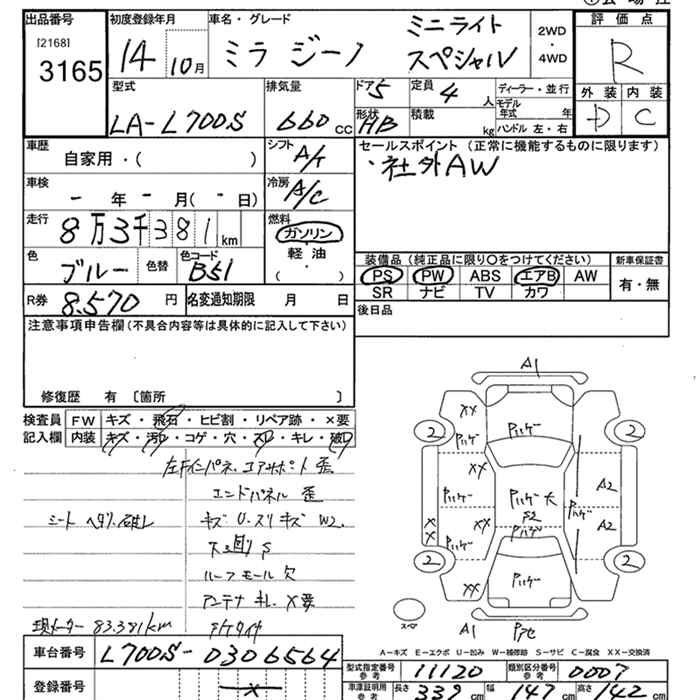 出品番号
[2168]
3165
初度登録年月
14 10月
車名・グレード
ミラ ジーノ ミニライト
スペシャル
2WD
・
4WD
評価点
R
外装 内装
D C
型式
LA-L700S
排気量
660 cc
ドア 5
形状 HB
定員 4 人
積載 kg
ディーラー・並行
モデル
年式 年
ハンドル 左・右
車歴
自家用・( )
シフト A/T
車検
- 年 - 月( - 日)
冷房 A/C
走行
8万3千381km
燃料
ガソリン
軽油
( )
色
ブルー
色替
色コード
B51
R券 8.570 円
名変通知期限 月 日
セールスポイント (正常に機能するものに限ります)
・社外AW
装備品 (純正品に限り○をつけてください)
PS PW ABS エアB AW
SR ナビ TV カワ
新車保証書
有・無
後日品
注意事項申告欄(不具合内容等は具体的に記入して下さい)
修復歴 有 〔箇所 〕
検査員
記入欄
FW キズ・飛石・ヒビ割・リペア跡・×要
内装 キズ・汚レ・コゲ・穴・スレ・キレ・破レ
左Fインパネ、エアサポート 歪
エンドパネル 歪
シート ヘタリ、破レ
キズ U.スリキズ W2.
S
ルーフモール 欠
アンテナ ×要
現メーター 83.381km
車台番号 L700S-0306564
登録番号
A1
××
2
2
××
××
××
××
A2
A2
S2
2
2
スペア
A1
A-キズ E-エクボ U-凹み W-補修跡 S-サビ C-腐食 XX-交換済
型式指定番号
参考
11120
類別区分番号
参考
0007
車庫証明用
参考
長さ 339 cm
幅 147 cm
高さ 142 cm